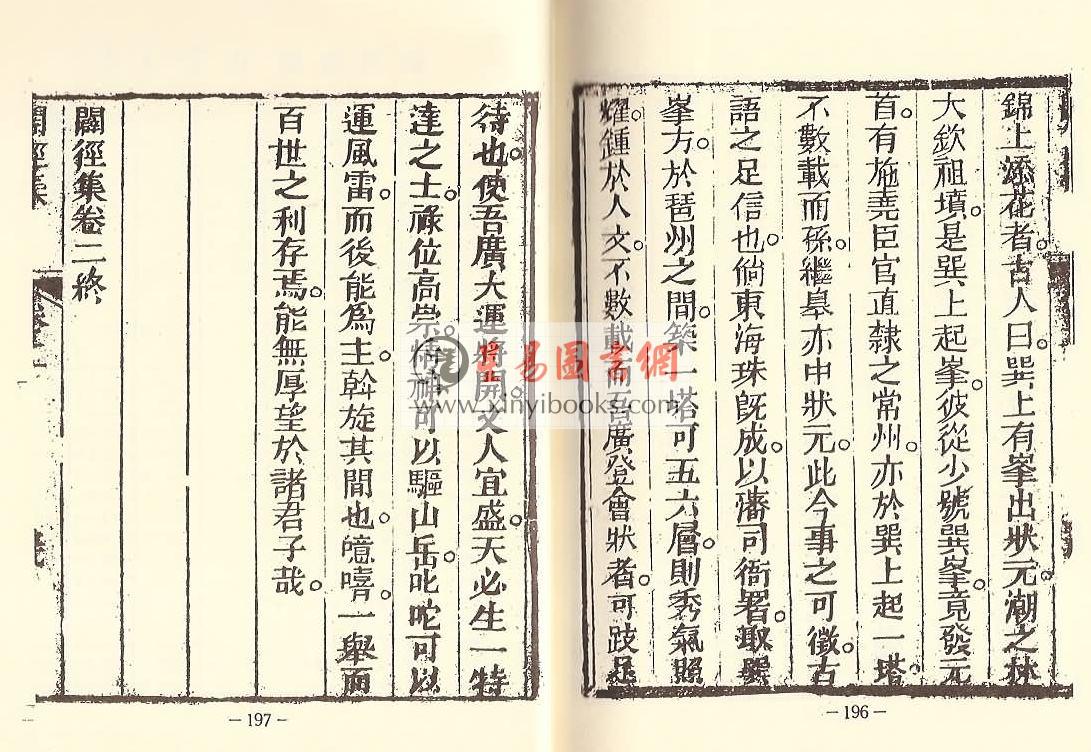 錦上添花者。古人曰。巽上有峯出狀元。潮之林
大欽祖墳。是巽上起峯。彼從少號巽峯。竟發元
首。有施堯臣官直隸之常州。亦於巽上起一塔。
不數載而孫繼皋亦中狀元。此今事之可徵。古
語之足信也。倘東海珠旣成。以藩司衙署。取巽
峯方。於琶州之間。築一塔可五六層。則秀氣照
耀。鍾於人文。不數載而吾廣登會狀者。可跂足
待也。使吾廣大運將開。文人宜盛。天必生一特
達之士。祿位高崇。精神可以驅山岳。叱咤可以
運風雷。而後能爲主。斡旋其間也。噫嘻。一舉而
百世之利存焉。能無厚望於諸君子哉。
闢徑集卷二終
星易圖書網
www.xinyibooks.com
— 196 —
— 197 —